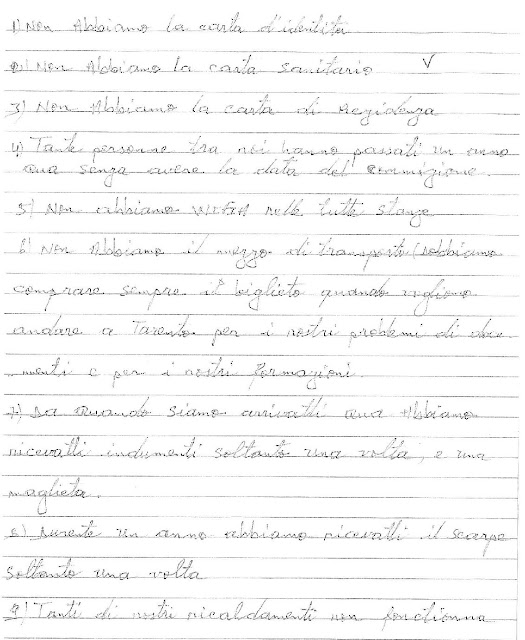 1) Non Abbiamo la carta d'identità
2) Non Abbiamo la carta sanitario V
3) Non Abbiamo la carta di Rezidenza
4) Tante personne tra noi hanno passati un anno
qua senza avere la data del commizione.
5) Non abbiamo WIFI nelle tutte stanze
6) Non Abbiamo il mezzo di transporto (dobbiamo
comprare sempre il biglieto quando vogliono
andare a Taranto per i nostri problemi di docu
menti e per i nostri formazioni.
7) Da Quando siamo arrivatti qua Abbiamo
ricevatti indumenti soltanto una volta, e una
maglieta.
8) Durente un anno abbiamo ricevatti il scarpe
soltanto una volta
9) Tanti di nostri ricaldamenti non fonctionna